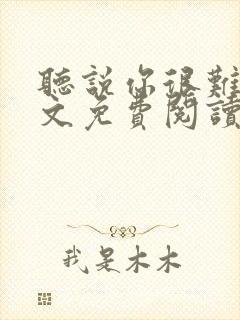 聽説你很難
文免費閱讀
我是木木